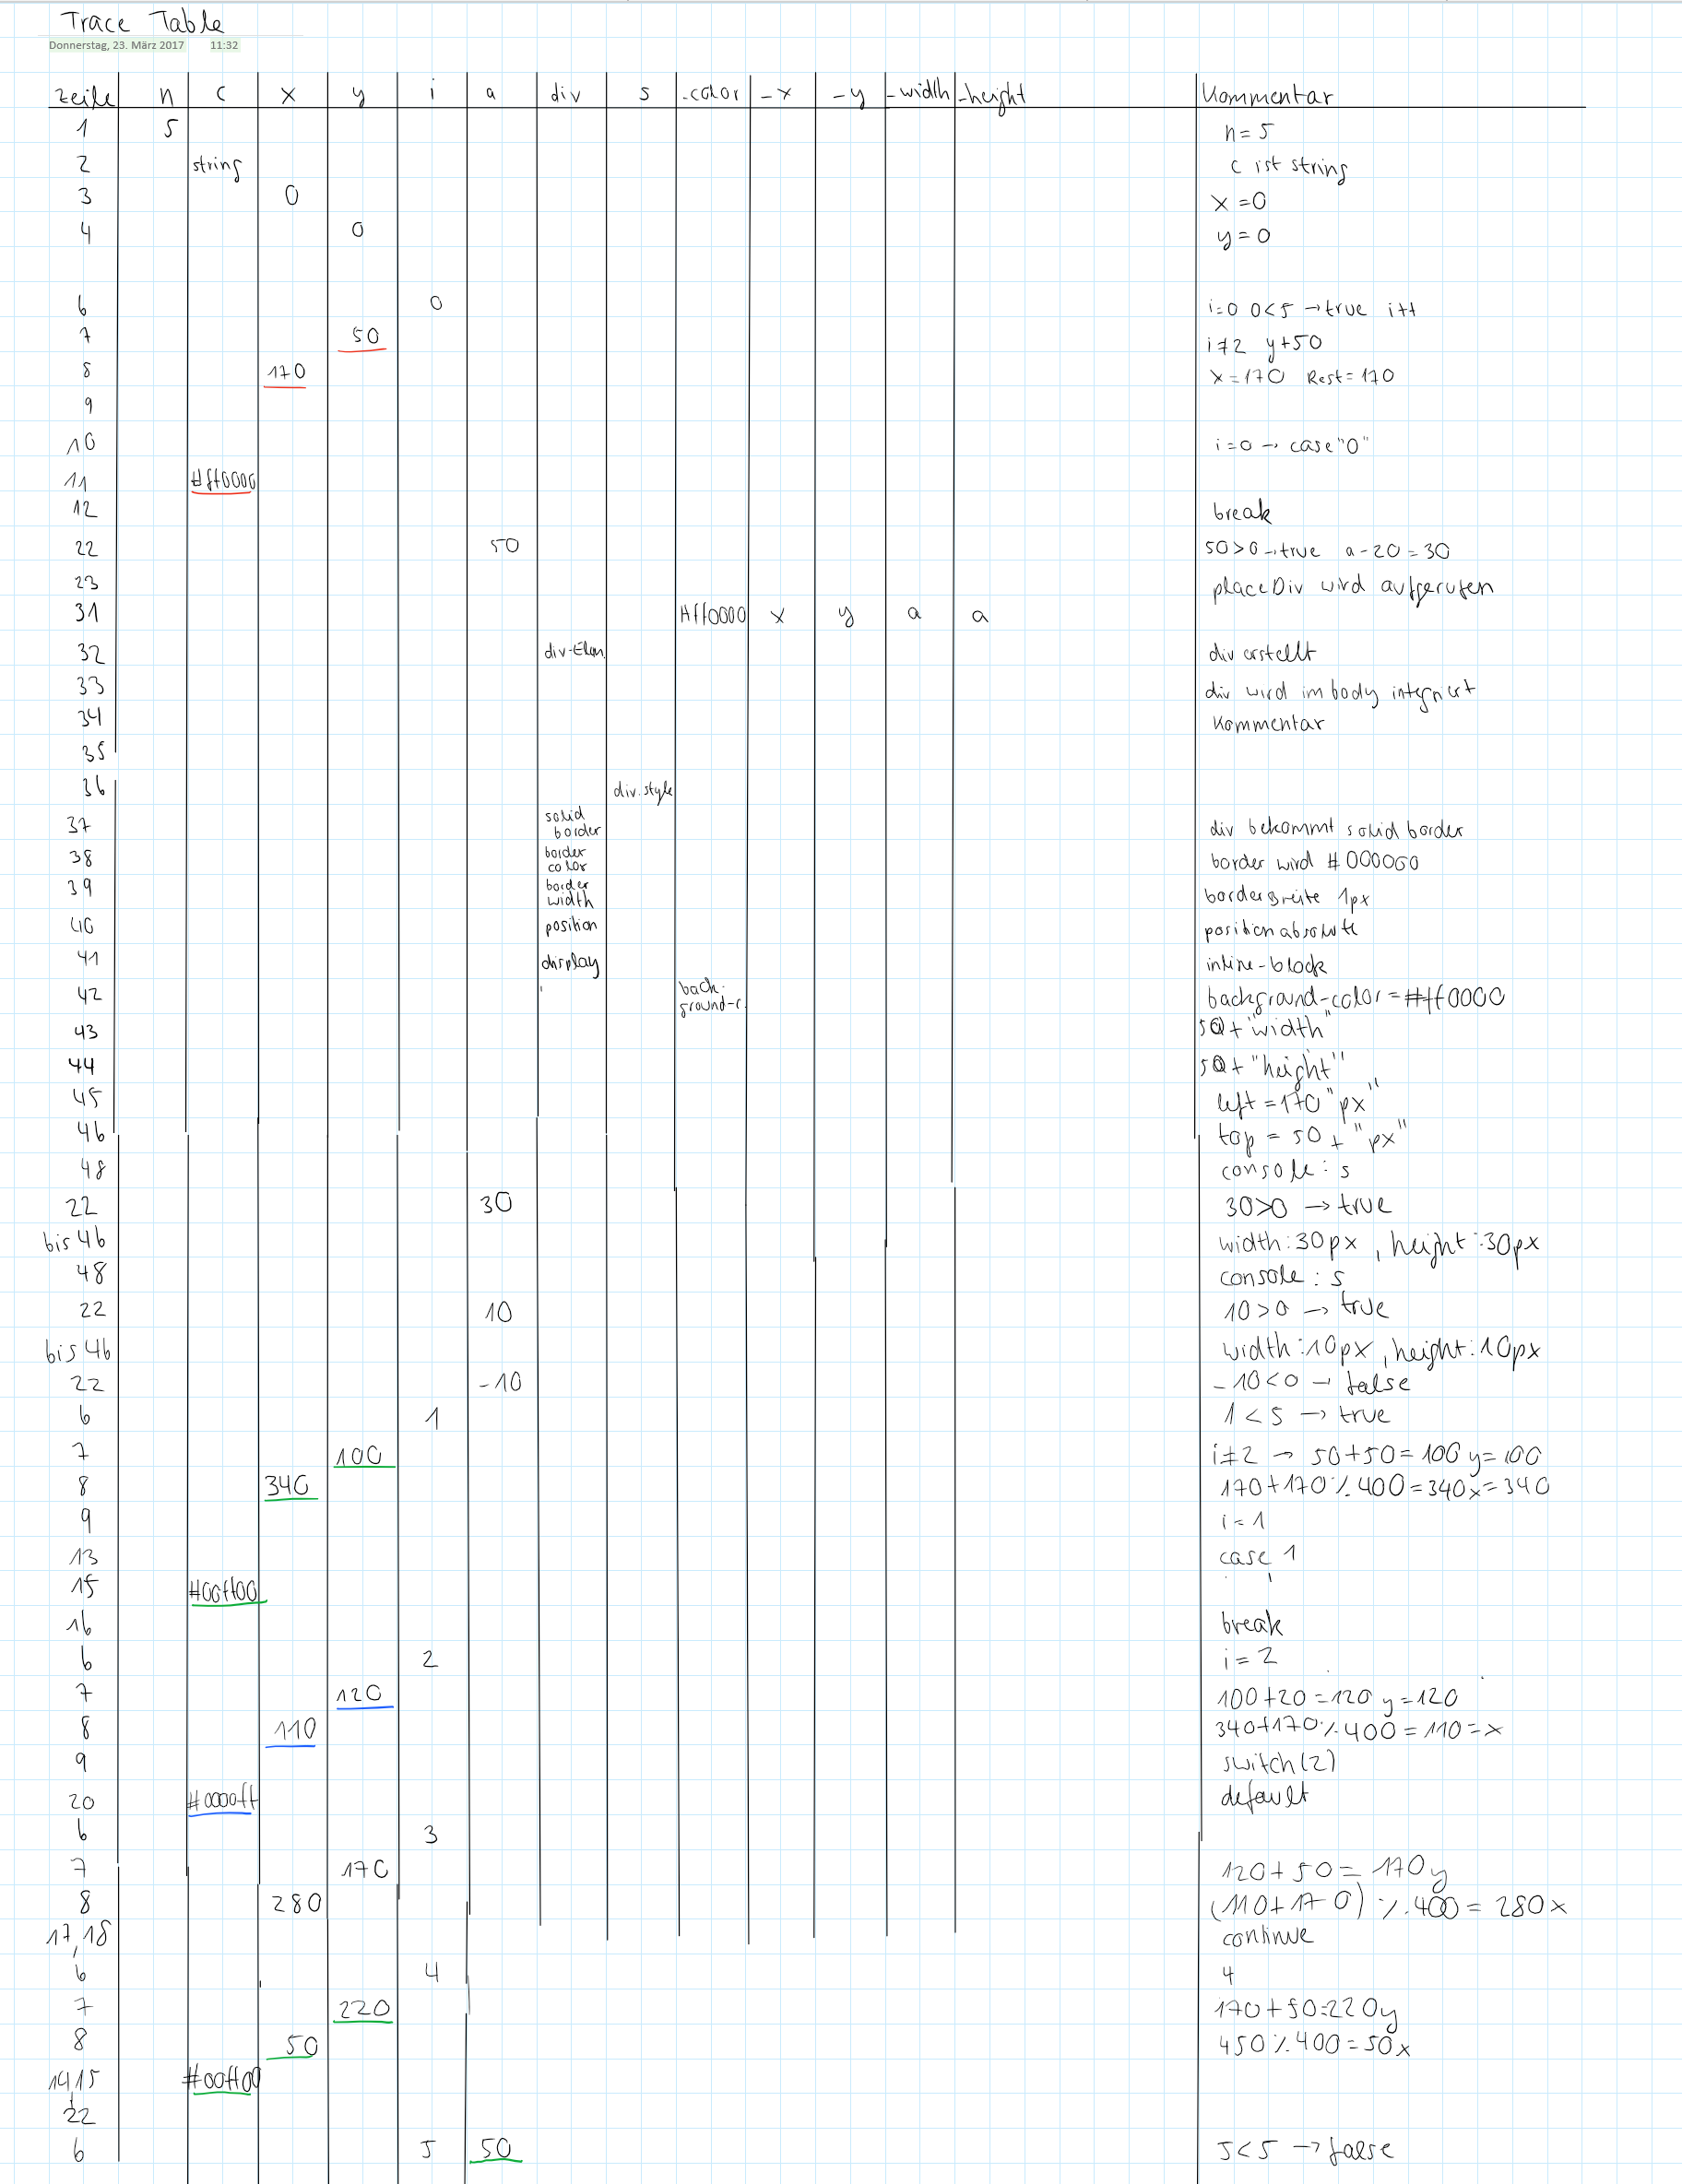 Trace Table
Donnerstag, 23. März 2017 11:32
Zeile n c x y i a div s _color _x _y _width _height Kommentar
1 5 n=5
2 string c ist string
3 0 x=0
4 0 y=0
6 0 i=0 0<5 →true i++
7 50 i≠2 y+50
8 170 x=170 Rest=170
9
10 i=0 → case "0"
11 #ff0000
12 break
22 50 50>0 → true a-20=30
23 placeDiv wird aufgerufen
31 #ff0000 x y a a
32 div-Elem. div erstellt
33 div wird im body integriert
34 Kommentar
35
36 div.style
37 solid border div bekommt solid border
38 border color border wird #000000
39 border width borderbreite 1px
40 position position absolute
41 display inline-block
42 back-ground-c. background-color=#ff0000
43 50+"width"
44 50+"height"
45 left=170"px"
46 top=50+"px"
48 console: s
22 30 30>0 → true
bis 46 width:30px, height:30px
48 console: s
22 10 10>0 → true
bis 46 width:10px, height:10px
22 -10 -10<0 → false
6 1 1<5 → true
7 100 i≠2 → 50+50=100 y=100
8 340 170+170%400=340 x=340
9 i=1
13 case 1
15 #00ff00
16 break
6 2 i=2
7 120 100+20=120 y=120
8 110 340+170%400=110=x
9 switch(2)
20 #0000ff default
6 3
7 170 120+50=170y
8 280 (110+170)%400=280x
17,18 continue
6 4 4
7 220 170+50=220y
8 50 450%400=50x
14,15 #00ff00
22
6 5 50 5<5 → false